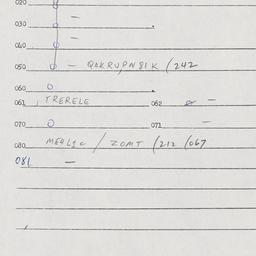 020
030
040
050 — QAKRUPNSIK /242
060
061, TRERELE 062 —
070 071 —
080 MEHLIC / ZOMT (212 (067
081 —